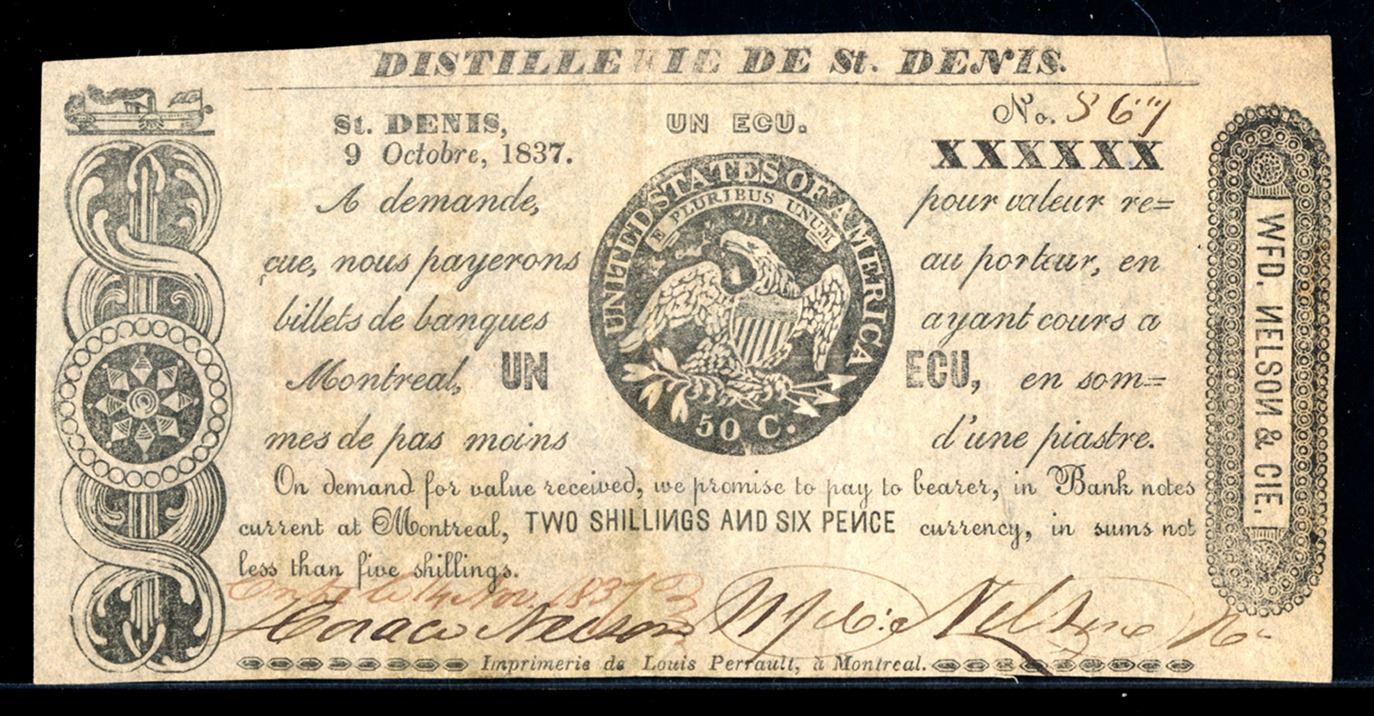 DISTILLERIE DE St. DENIS.
No. 867
St. DENIS,
UN ECU.
9 Octobre, 1837.
XXXXXX
A demande, pour valeur re=
çue, nous payerons au porteur, en
billets de banques ayant cours a
Montreal, UN ECU, en som=
mes de pas moins d'une piastre.
UNITED STATES OF AMERICA
E PLURIBUS UNUM
50 C.
On demand for value received, we promise to pay to bearer, in Bank notes
current at Montreal, TWO SHILLINGS AND SIX PENCE currency, in sums not
less than five shillings.
14 Nov. 1837
Horace Nelson Wfd: Nelson & Co
Imprimerie de Louis Perrault, à Montreal.
WFD. NELSON & CIE.